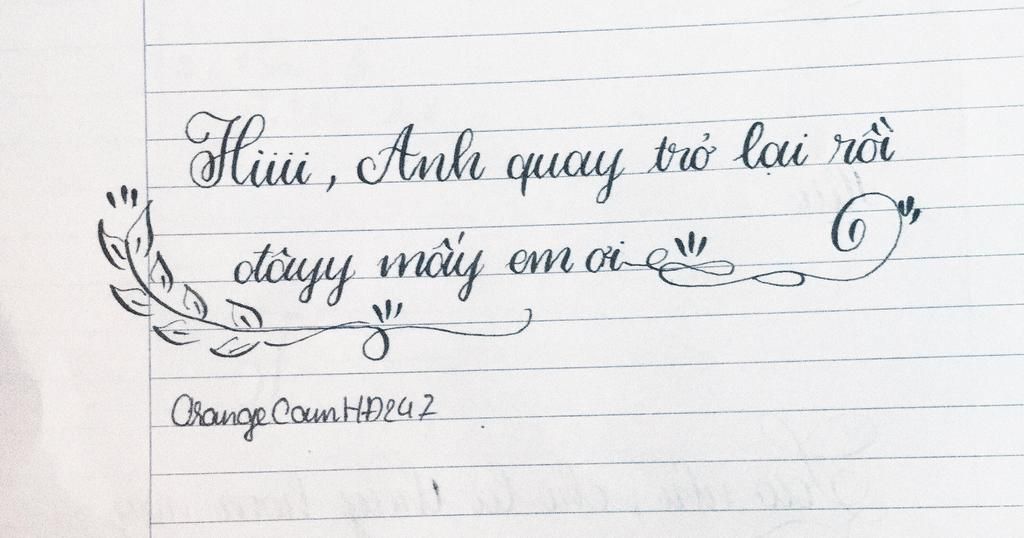 Hiiii, Anh quay trở lại rồi
đâyy mấy em ơi
OrangeCamHD247